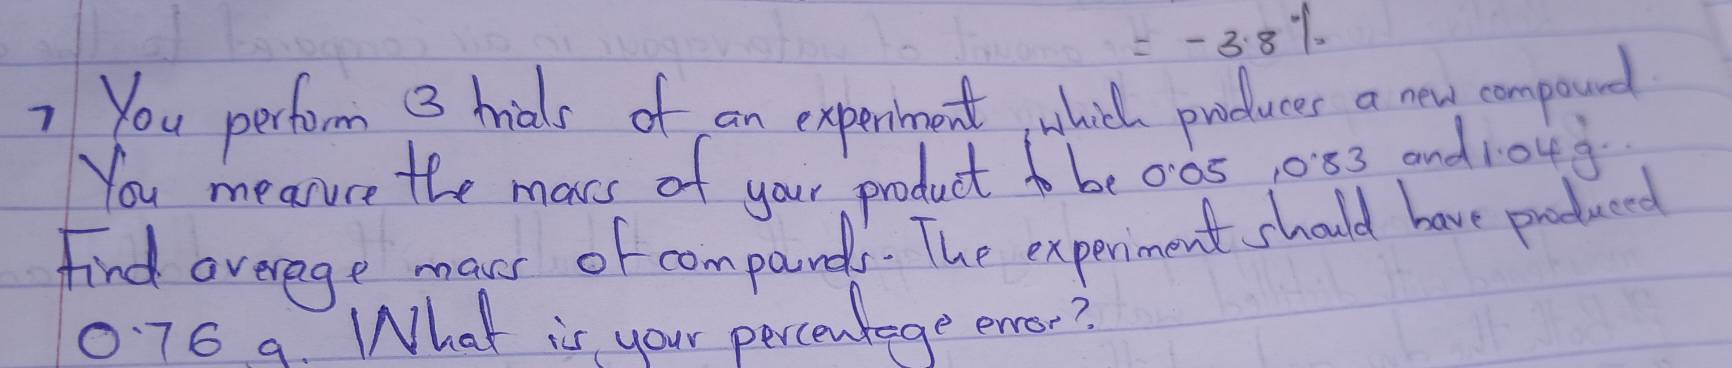 = -3.8%
7 You perform 3 trials of an experiment, which produces a new compound.
You measure the mass of your product to be 0.05, 0.83 and 1.04g.
Find average mass of compounds. The experiment should have produced
0.76 g. What is your percentage error?